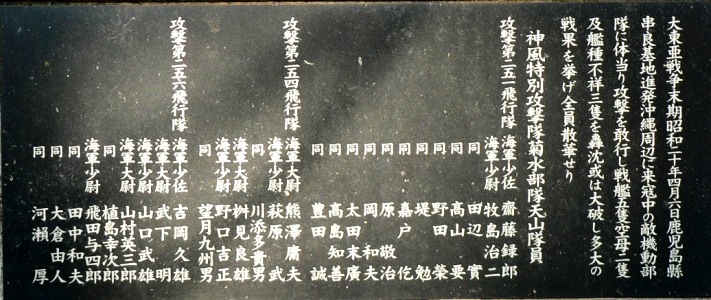 大東亜戦争末期昭和二十年四月六日鹿児島縣
串良基地進発沖縄周辺に来寇中の敵機動部
隊に体当り攻撃を敢行し戦艦五隻空母二隻
及艦種不祥三隻を轟沈或は大破し多大の
戦果を挙げ全員散華せり
神風特別攻撃隊菊水部隊天山隊員
攻撃第二五一飛行隊 海軍少佐 齋藤録郎
海軍少尉 牧島治二
同 田辺實
同 高山要
同 野田榮
同 堤勉
同 嘉戸仡
同 原敬治
同 岡和夫
同 太田末廣
同 高島知善
同 豊田誠
攻撃第二五四飛行隊 海軍大尉 熊澤庸夫
海軍少尉 萩原武
同 川添多貴男
海軍大尉 桝見良雄
海軍少尉 野口吉正
同 望月九州男
攻撃第二五六飛行隊 海軍少佐 吉岡久雄
海軍大尉 武下明
海軍少尉 山口武雄
海軍大尉 山村英三郎
同 植島幸次郎
海軍少尉 飛田与四郎
同 田中和夫
同 大倉由人
同 河瀬厚